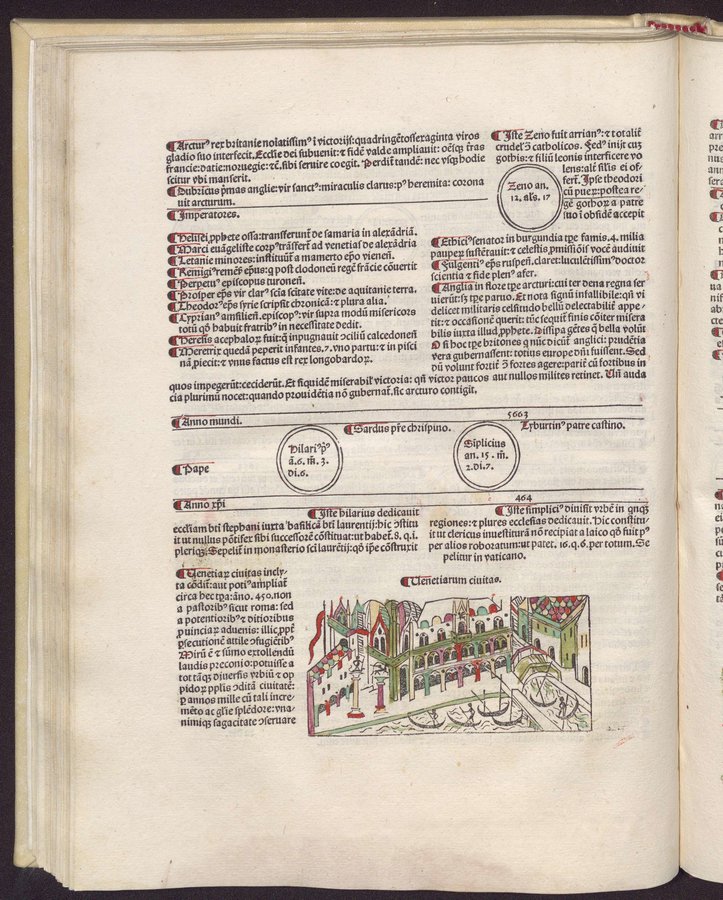 Arctur⁹ rex britanie nolatissim⁹ ĩ victorijs: quadringẽtossexaginta viros
gladio suo interfecit. Ecclie dei subuenit: ⁊ fidẽ valde ampliauit: oẽsq̃ t̃ras
francie: datie: noruegie: ⁊c̃. sibi seruire coegit. Perdit̃ tandẽ: nec vsq̃ hodie
scitur vbi manserit.
Dubricus p̃mas anglie: vir sanct⁹: miraculis clarus: p⁹ heremita: corona
uit arcturum.
Imperatores.
Iste Zeno fuit arrian⁹: ⁊ totalit̃
crudel⁹ ɔ̃ catholicos. Fed⁹ inijt cuʒ
gothis: ⁊ filiũ leonis interficere vo
lens: alẽ filis ei of⸗
fert̃. Ipse theodori
cũ pueꝝ: postea re⸗
gẽ gothoꝝ a patre
suo ĩ obsidẽ accepit
Zeno an.
12. als. 17
Helisei ꝓphete ossa: transferunt̃ de samaria in alexãdriã.
Marci euãgeliste corp⁹ trãsfert̃ ad venetias de alexãdria
Letanie minores: instituũt̃ a mamerto ep̃o vienen̄.
Remigi⁹ remẽs ep̃us: q̃ post dodoneũ regẽ frãcie cõuertit
Perpetu⁹ episcopus turonen̄.
Prosper ep̃s vir clar⁹ scĩa scĩtate vite: de aquitanie terra.
Theodor⁹ ep̃s syrie scripsit chronicã: ⁊ plura alia.
Cyprian⁹ amsilien̄. episcop⁹: vir supra modũ misericors
totũ qõ habuit fratrib⁹ in necessitate dedit.
Heresis acephaloꝝ fuit: q̃ impugnauit ɔciliũ calcedonen̄
Meretrix quedã peperit infantes. 7. vno partu: ⁊ in pisci
nã ꝓiecit: ⁊ vnus factus est rex longobardoꝝ.
Ethici⁹ senator in burgundia tp̃e famis. 4. milia
paupeꝝ sustẽtauit: ⁊ celestis ꝓmissiõis vocẽ audiuit
Fulgenti⁹ ep̃s ruspen̄. claret: luculẽtissim⁹ doctor
scientia ⁊ fide plen⁹ afer.
Anglia in flore tp̃e arcturi: cui ter dena regna ser
uierũt: sʒ tp̃e paruo. Et nota signũ infallibile: qñ vi
delicet militaris celsitudo bellũ delectabilit̃ appe⸗
tit: ⁊ occasionẽ querit: tũc sequit̃ finis cõiter misera
bilis iuxta illud ꝓphete. Dissipa gẽtes q̃ bella volũt
O si hoc tp̃e britones q̃ nũc dicũt̃ anglici: prudẽtia
vera gubernassent: totius europe dñi fuissent. Sed
dũ volunt fortit̃ ɔ̃ fortes agere: pariẽ cũ fortibus in
quos impegerũt: ceciderũt. Et siquidẽ miserabil⁹ victoria: qñ victor paucos aut nullos milites retinet. Uñ auda
cia plurimũ nocet: quando prouidẽtia nõ gubernat̃. sic arcturo contigit.
Anno mundi. 5663
Sardus pr̃e chrispino. Tyburtin⁹ patre castino.
Pape
Hilari⁹ p̃⁹
ã. 6. m̃. 3.
di. 6.
Siplicius
an. 15. m̃.
2. di. 7.
Anno xp̃i 464
Iste hilarius dedicauit
eccl̃iam bt̃i stephani iuxta basilicã bt̃i laurentij: hic ɔ̃stitu
it ut nullus põtifex sibi successorẽ cõstituat: ut habet̃. 8. q. i.
pleriq̃. Sepelit̃ in monasterio sci laurẽtij: qõ ip̃e cõstruxit
Iste simplici⁹ diuisit vrbẽ in qnq̃
regiones: ⁊ plures ecclesias dedicauit. Hic constitu⸗
it ut clericus inuestiturã nõ recipiat a laico qõ fuit p⁹
per alios roboratum: ut patet. 16. q. 6. per totum. Se
pelitur in vaticano.
Uenetiaꝝ ciuitas incly⸗
ta cõdit̃: aut poti⁹ ampliat̃
circa hec tp̃a: ãno. 450. non
a pastorib⁹ sicut roma: sed
a potentiorib⁹ ⁊ ditioribus
ꝓuinciaꝝ aduenis: illic ꝓpt̃
ꝑsecutionẽ attile ɔfugiẽtib⁹
Mirũ ẽ ⁊ sũmo extollendũ
laudis preconio: potuisse a
tot tãq̃ diuersis vrbiũ ⁊ op
pidoꝝ pplis ɔditã ciuitatẽ:
ꝑ annos mille cũ tali incre⸗
mẽto ac gl̃ie splẽdore: vna⸗
nimiq̃ sagacitate ɔseruare
Uenetiarum ciuitas.